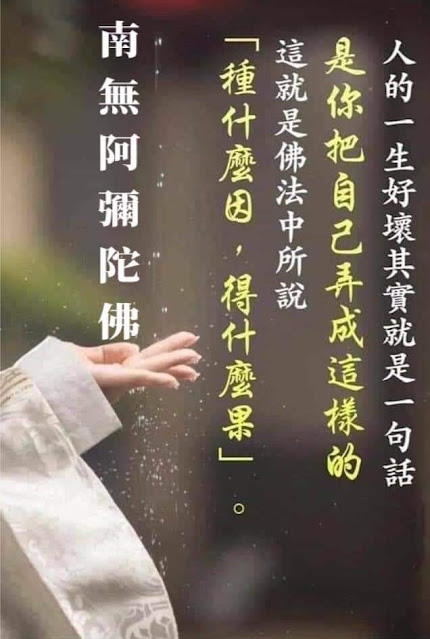 人的一生好壞其實就是一句話
是你把自己弄成這樣的
這就是佛法中所說
「種什麼因，得什麼果」。
南無阿彌陀佛